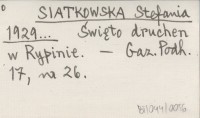 SIATKOWSKA Stefania
1929... Święto druchen
w Rypinie. — Gaz. Podh.
17, nr 26.
B/1044/0016